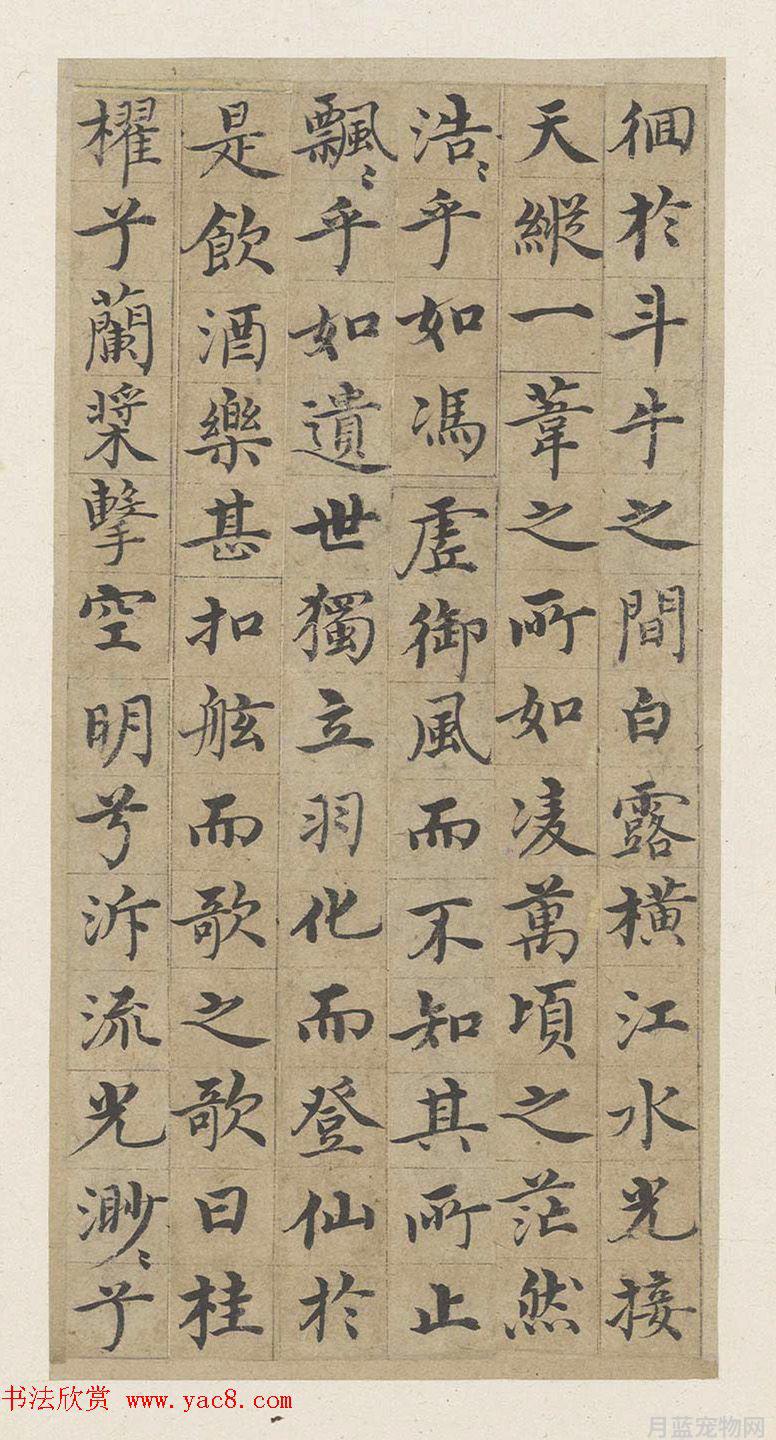 徊於斗牛之間白露橫江水光接
天縱一葦之所如凌萬頃之茫然
浩〻乎如馮虛御風而不知其所止
飄〻乎如遺世獨立羽化而登仙於
是飲酒樂甚扣舷而歌之歌曰桂
櫂兮蘭槳擊空明兮泝流光渺〻兮
书法欣赏 www.yac8.com
月蓝宠物网